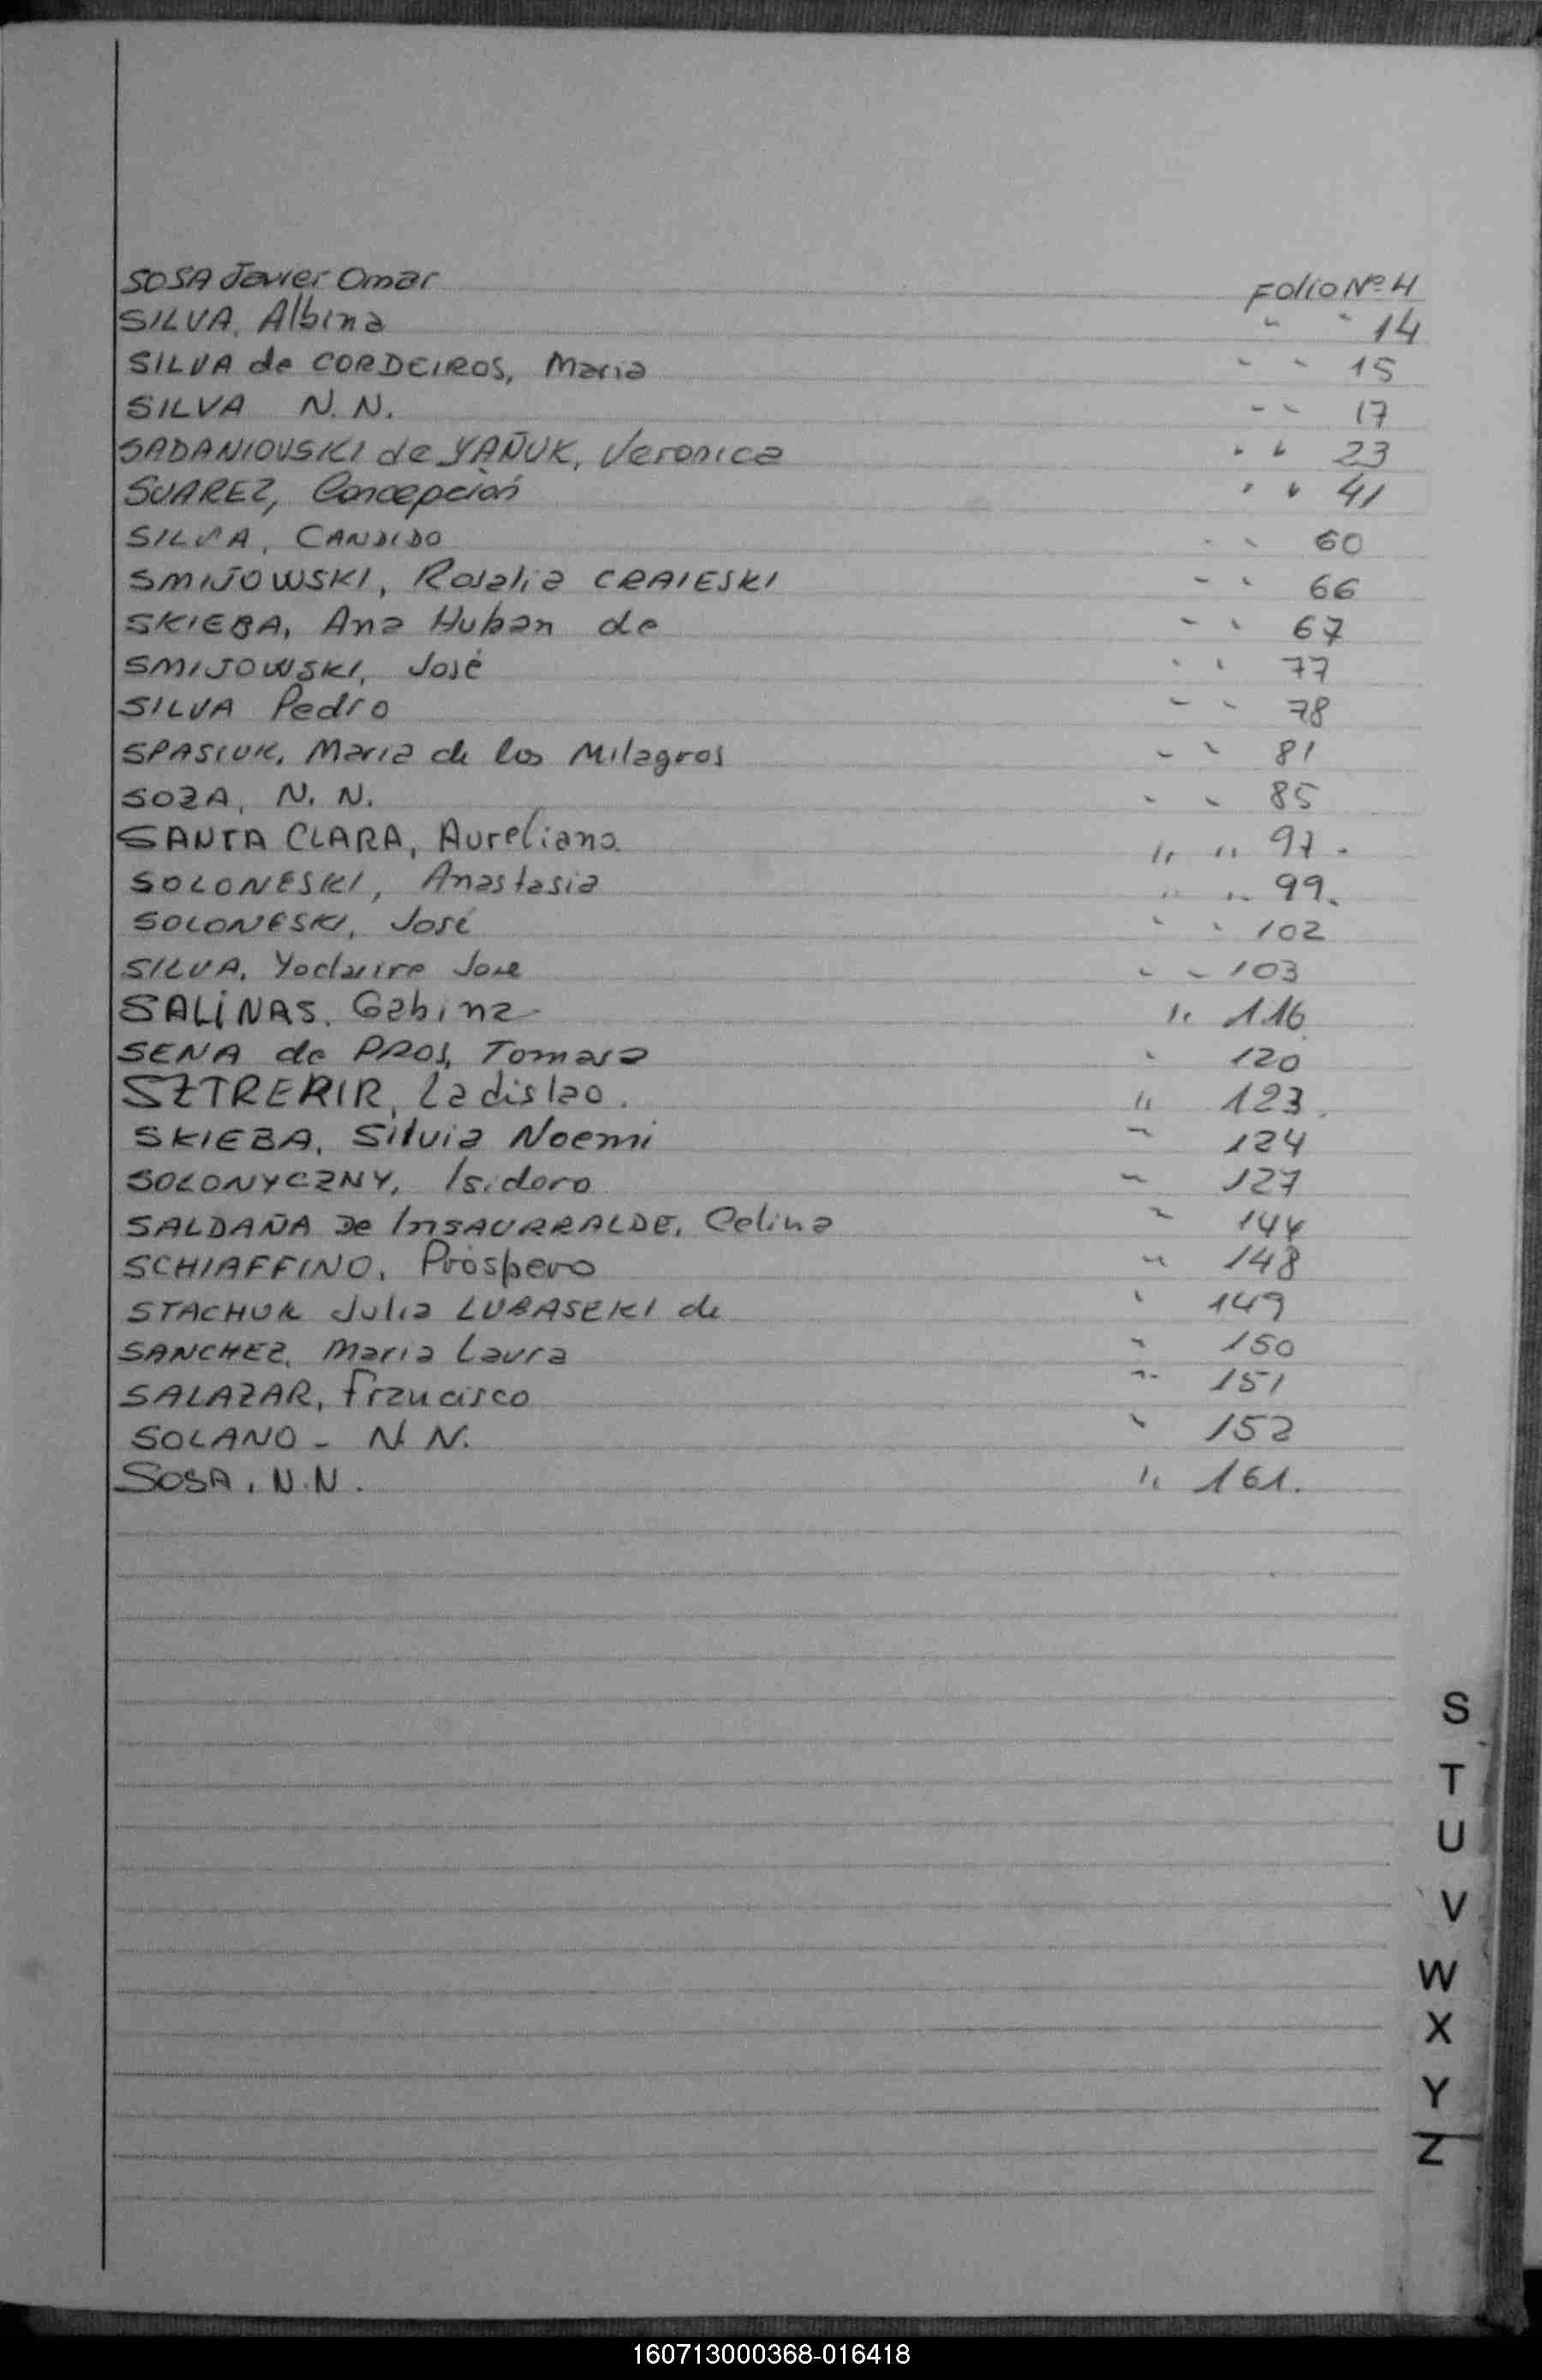 SOSA Javier Omar Folio Nº 4
SILVA, Albina " " 14
SILVA de CORDEIROS, Maria " " 15
SILVA N.N. " " 17
SADANIOVSKI de YAÑUK, Veronica " " 23
SUAREZ, Concepción " " 41
SILVA, CANDIDO " " 60
SMIJOWSKI, Rosalia CRAIESKI " " 66
SKIEBA, Ana Huban de " " 67
SMIJOWSKI, José " " 77
SILVA Pedro " " 78
SPASIUK, Maria de los Milagros " " 81
SOZA, N. N. " " 85
SANTA CLARA, Aureliano " " 97.
SOLONESKI, Anastasia " " 99.
SOLONESKI, José " " 102
SILVA, Jose " " 103
SALINAS, Gabina " 116
SENA de PROS, Tomasa " 120
SZTRERIR, Ladislao. " 123.
SKIEBA, Silvia Noemi " 124
SOLONYCZNY, Isidoro " 127
SALDAÑA De INSAURRALDE, Celina " 144
SCHIAFFINO, Próspero " 148
STACHUK Julia LUBASEKI de " 149
SANCHEZ, Maria Laura " 150
SALAZAR, Francisco " 151
SOLANO - N N. " 152
SOSA, N.N. " 161.
S
T
U
V
W
X
Y
Z
160713000368-016418